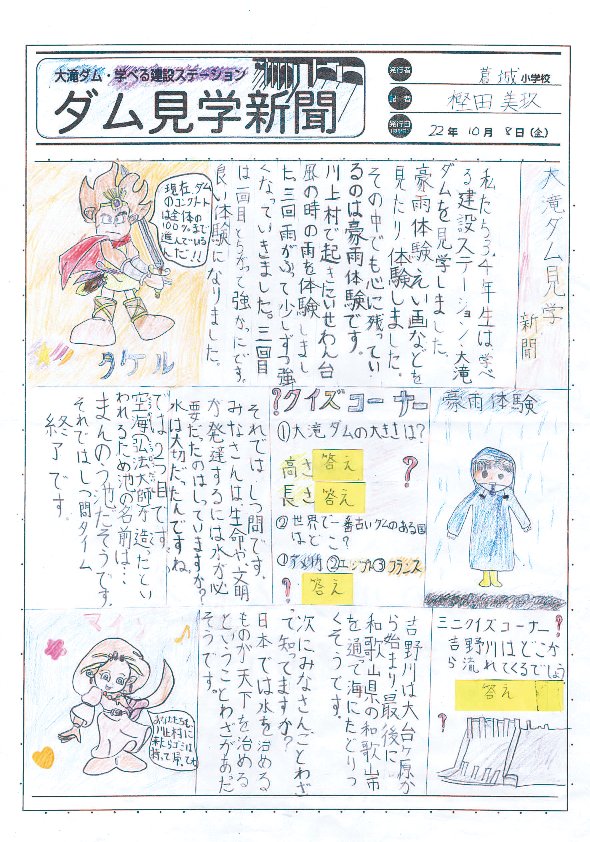 大滝ダム・学べる建設ステーション
ダム見学新聞
発行者
葛城小学校
記者
樫田美玖
発行日
22年10月8日(金)
大滝ダム見学
新聞
私たち
4年生は、学べ
る建設ステーション大滝
ダムを見学しました。
豪雨体験、えい画などを
見たり体験しました。
その中でも心に残ってい
るのは豪雨体験です。
川上村で起きたいせわん台
風の時の雨を体験しまし
た。三回雨がふって少しずつ強
くなっていきました。三回目
は一回目とちがって強かったです。
良い体験になりました。
現在、ダム
のコンクリート
は全体の
100%まで
進んでいるん
だ!!
タケル
豪雨体験
?クイズコーナー
①大滝ダムの大きさは?
高さ 答え
長さ 答え
?
②世界で一番古いダムのある国
はどこ?
①アメリカ ②エジプト ③フランス
? 答え
それでは、しつ問です。
みなさんは、生命や、文明
が発達するには水が必
要だったのはしっていますか?
水は大切だったんですね。
では2つ目です。
空海(弘法大師)が造ったとい
われるため池の名前は…
まんのう池だそうです。
それではしつ問タイム
終了です。
ミニクイズコーナー?
吉野川はどこか
ら流れてくるでしょう
答え
?
吉野川は大台ケ原か
ら始まり、最後に
和歌山県の和歌山市
を通って海にたどりつ
くそうです。
次にみなさんことわざ
で知ってますか?
日本では水を治める
ものが天下を治める
ということわざがあるだ
そうです。
マイン
あなたたちも
川上村に
来たらゴミは
持って帰ってね